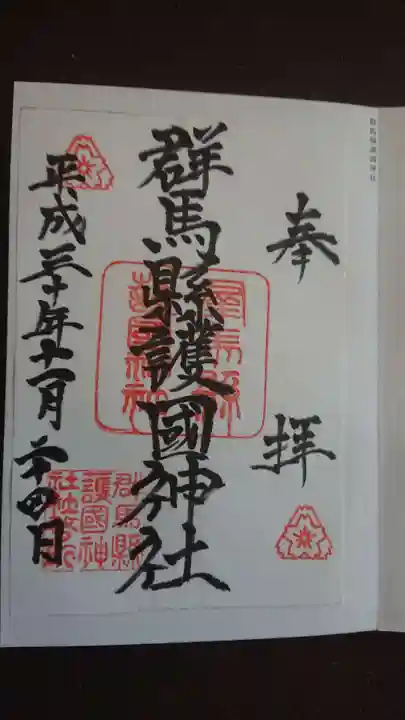 群馬縣護國神社
奉拝
群馬縣護國神社
平成三十年十一月二十四日
群馬縣
護國神
社社務所